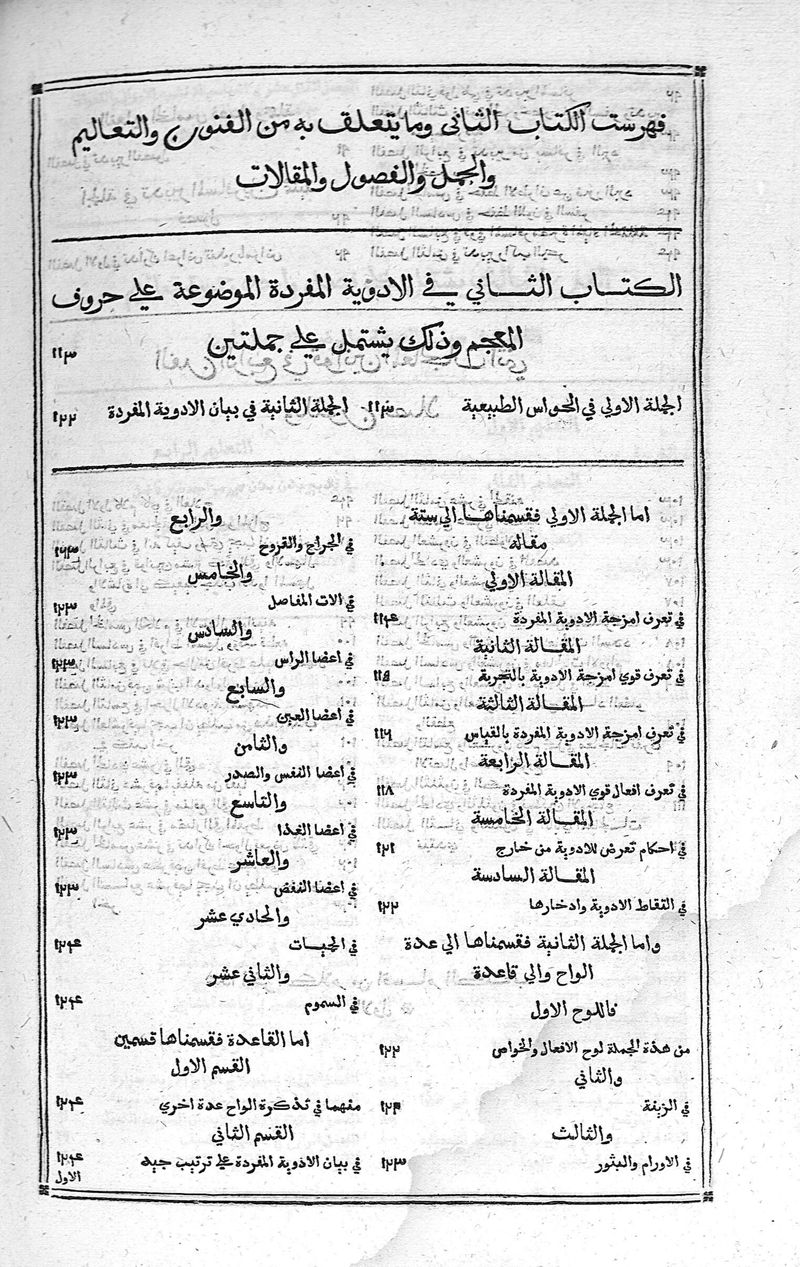 فهرست الكتاب الثاني وما يتعلق به من الفنون والتعاليم
والجمل والفصول والمقالات
الكتاب الثاني في الادوية المفردة الموضوعة علي حروف
المعجم وذلك يشتمل علي جملتين ١١٣
الجملة الاولي في الحواس الطبيعية ١١٣
الجملة الثانية في بيان الادوية المفردة ١٢٢
اما الجملة الاولي فقسمناها الي ستة
مقالة
المقالة الاولي
في تعرف امزجة الادوية المفردة ١١٤
المقالة الثانية
في تعرف قوي امزجة الادوية بالتجربة ١١٥
المقالة الثالثة
في تعرف امزجة الادوية المفردة بالقياس ١١٦
المقالة الرابعة
في تعرف افعال قوي الادوية المفردة ١١٨
المقالة الخامسة
في احكام تعرض للادوية من خارج ١٢١
المقالة السادسة
في التقاط الادوية وادخارها ١٢٢
واما الجملة الثانية فقسمناها الي عدة
الواح والي قاعدة
فاللوح الاول
من هذة الجملة لوح الافعال والخواص ١٢٢
والثاني
في الزينة
والثالث
في الاورام والبثور ١٢٣
والرابع
في الجراح والقروح
والخامس
في الات المفاصل ١٢٣
والسادس
في اعضا الراس ١٢٣
والسابع
في اعضا العين ١٢٣
والثامن
في اعضا النفس والصدر ١٢٣
والتاسع
في اعضا الغذا ١٢٣
والعاشر
في اعضا النفض ١٢٣
والحادي عشر
في الحميات ١٢٤
والثاني عشر
في السموم ١٢٤
اما القاعدة فقسمناها قسمين
القسم الاول
منهما في تذكرة الواح عدة اخري ١٢٤
القسم الثاني
في بيان الادوية المفردة علي ترتيب جيد ١٢٤
الاول